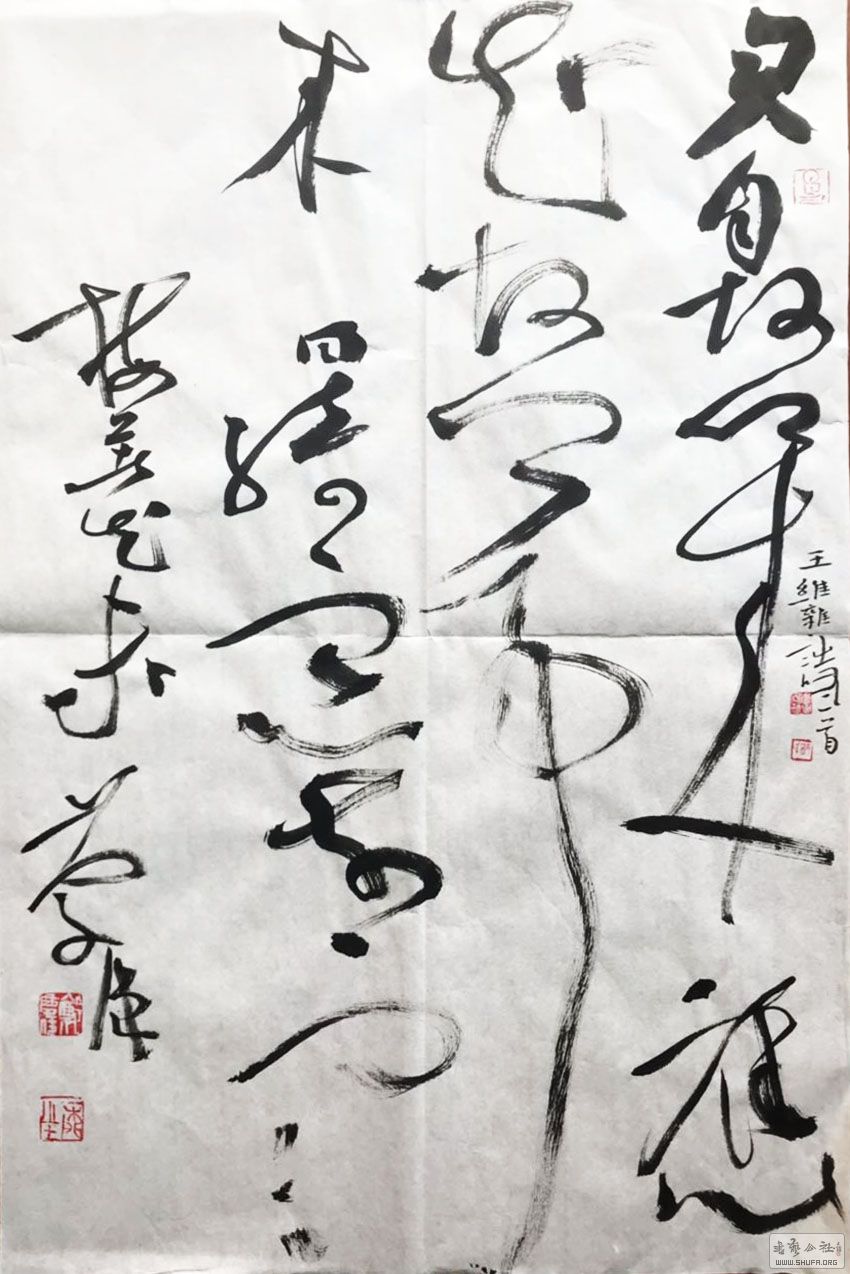 君自故鄉來應
知故鄉事
來日綺窗前寒
梅著花未
王維雜詩二首
書藝公社
WWW.SHUFA.ORG